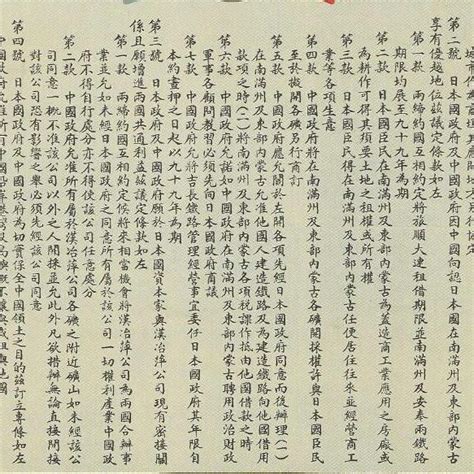 第二號　日本國政府及中國政府因中國向認日本國在南滿州及東部內蒙古
享有優越地位茲議定條款如左
第一款　兩締約國互相約定將旅順大連租借期限並南滿州及安奉兩鐵路
期限均展至九十九年為期
第二款　日本國臣民在南滿州及東部內蒙古為蓋造商工業應用之房廠或
為耕作可得其須要土地之租權或所有權
第三款　日本國臣民得在南滿州及東部內蒙古任便居住往來並經營商工
業等各項生意
第四款　中國政府將在南滿州及東部內蒙古各礦開採權許與日本國臣民
至於擬開各礦另行商訂
第五款　中國政府應允關於左開各項先經日本國政府同意而後辦理(一)
在南滿州及東部內蒙古允准他國人建造鐵路及為建造鐵路向他國借用
款項之時(二)將南滿州及東部內蒙古各項稅課作抵由他國借款之時
第六款　中國政府允諾如中國政府在南滿州及東部內蒙古聘用政治財政
軍事各顧問教習必須先向日本國政府商議
第七款　中國政府允將吉長鐵路管理經營事宜委任日本國政府其年限自
本約畫押之日起以九十九年為期
第三號　日本國政府及中國政府願於日本國資本家與漢冶萍公司現有密接關
係且願增進兩國共通利益茲議定條款如左
第一款　兩締約國互相約定俟將來相當機會將漢冶萍公司為兩國合辦事
業並允如未經日本國政府之同意所有屬於該公司一切權利產業中國政
府不得自行處分亦不得使該公司任意處分
第二款　中國政府允准所有屬於漢冶萍公司各礦之附近礦山如未經該公
司同意一概不准該公司以外之人開採並允此外凡欲措辦無論直接間接
對該公司恐有影響之舉必須先經該公司同意
第四號　日本國政府及中國政府為切實保全中國領土之目的茲訂立專條如左